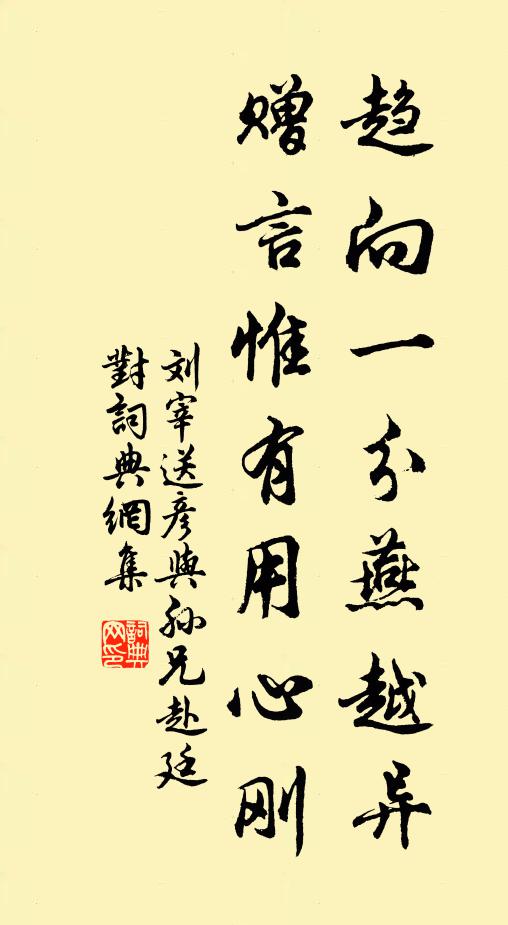 趋向一分燕越异
赠言惟有用心刚
刘宰送彦与孙兄赴廷
對詞典網集
詞典网印